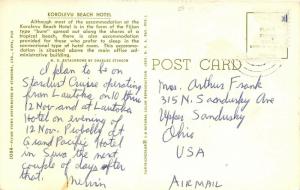 KOROLEVU BEACH HOTEL
Although most of the accommodation at the
Korolevu Beach Hotel is in the form of the Fijian
type "bure" spread out along the shores of a
tropical beach, there is also accommodation
provided for those who prefer to sleep in the
conventional type of room. This accommodation
is situated above the main office and
administrative building.
H. S. EKTACHROME BY CHARLES STINSON
I plan to be on
Stardust Cruise operating
from Lautoka, on 10 thru
12 Nov and at Lautoka
Hotel on evening of
12 Nov. Probably at
Grand Pacific Hotel
in Suva the next
couple of days after
that.
Melvin
POST CARD
Mrs. Arthur Frank
315 N. Sandusky Ave
Upper Sandusky
Ohio
USA
AIRMAIL